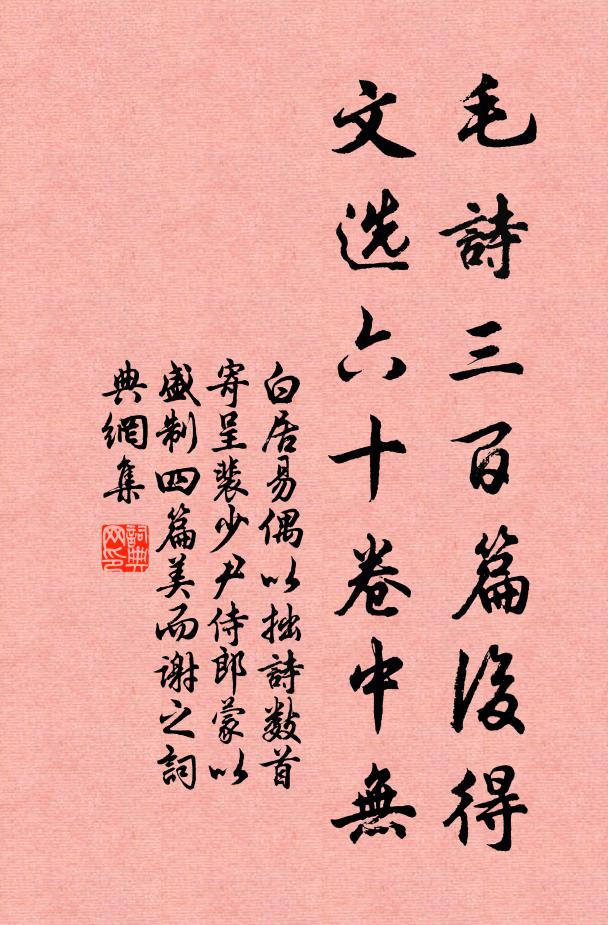 毛詩三百篇後得
文选六十卷中無
白居易偶以拙詩数首
寄呈裴少尹侍郎蒙以
盛制四篇美而谢之詞
典網集
詞典
网印